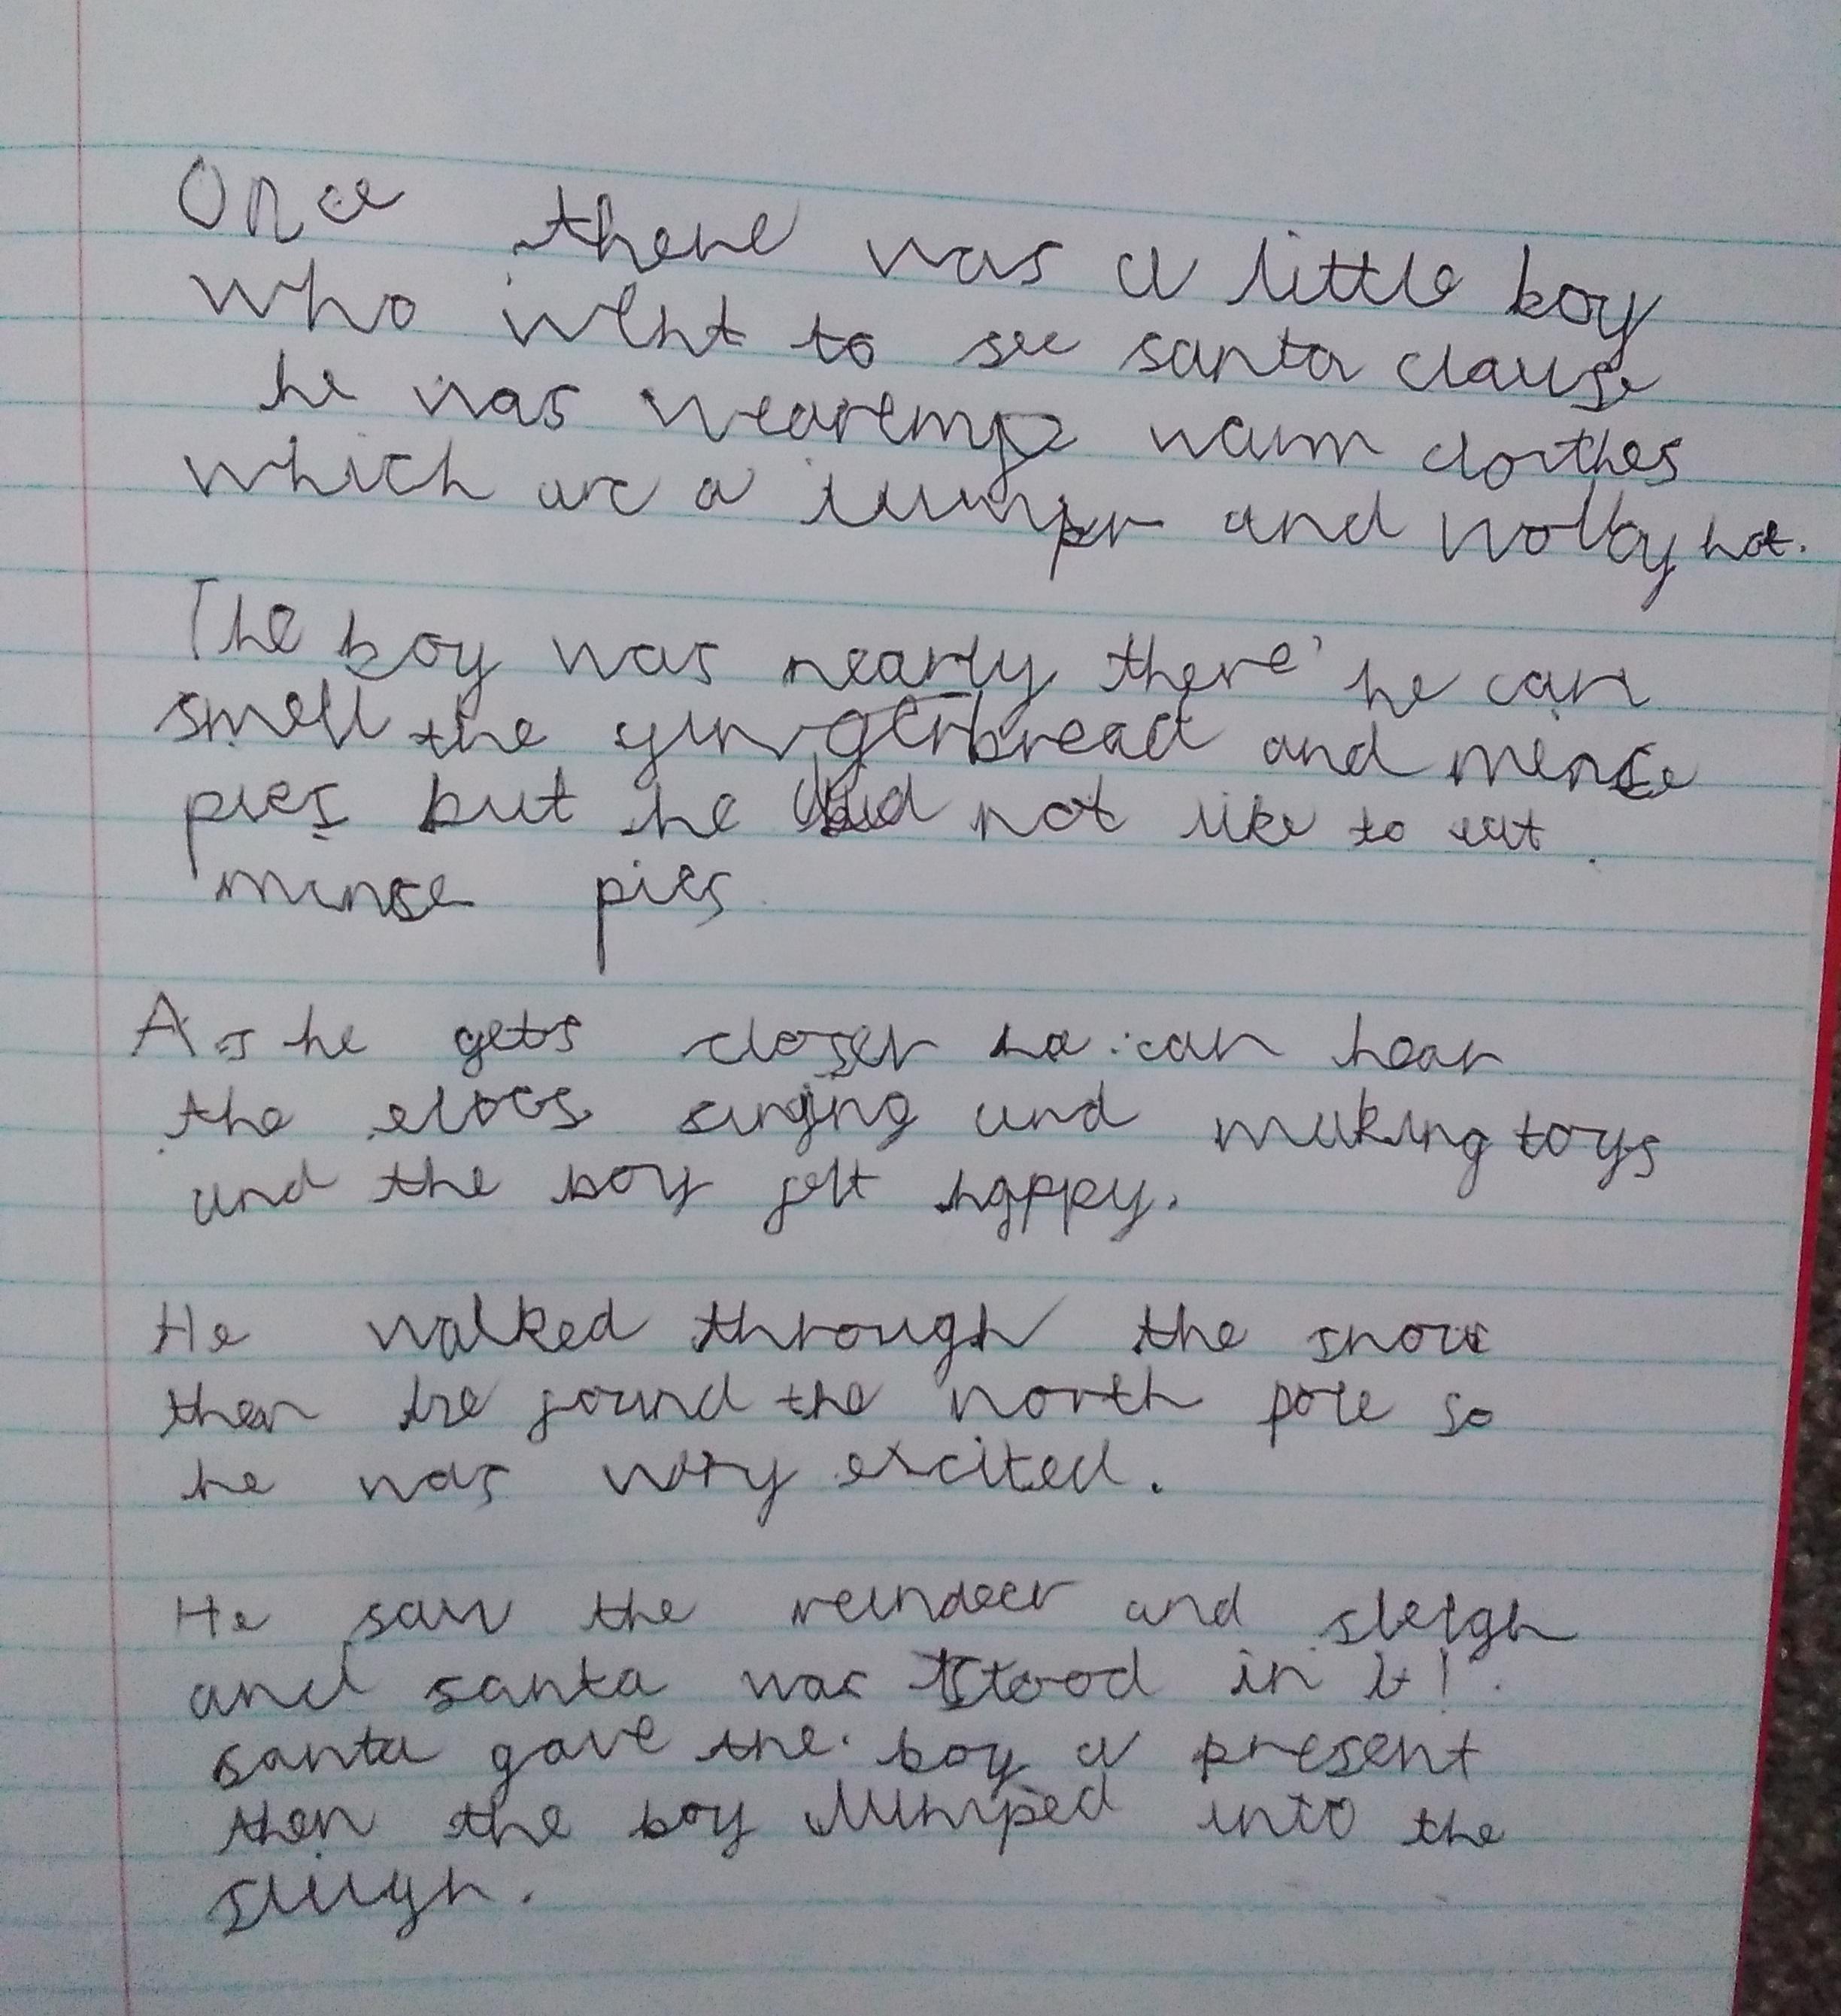 Once there was a little boy
who went to see santa clause
he was weareing warm clothes
which are a jumper and wolby hat.
The boy was nearly there he can
smell the gingerbread and minse
pies but he did not like to eat
minse pies
As he gets closer he can hear
the elves singing and making toys
and the boy felt happy.
He walked through the snow
then he found the north pole so
he was very excited.
He saw the reindeer and sleigh
and santa was stood in it!
santa gave the boy a present
then the boy Jumped into the
sleigh.